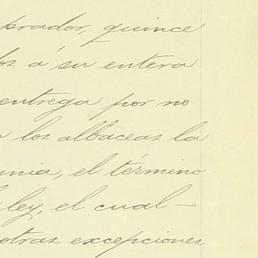 prador, quince
los á su entera
entrega por no
a los albaceas la
unia, el término
ley, el cual-
otras excepciones